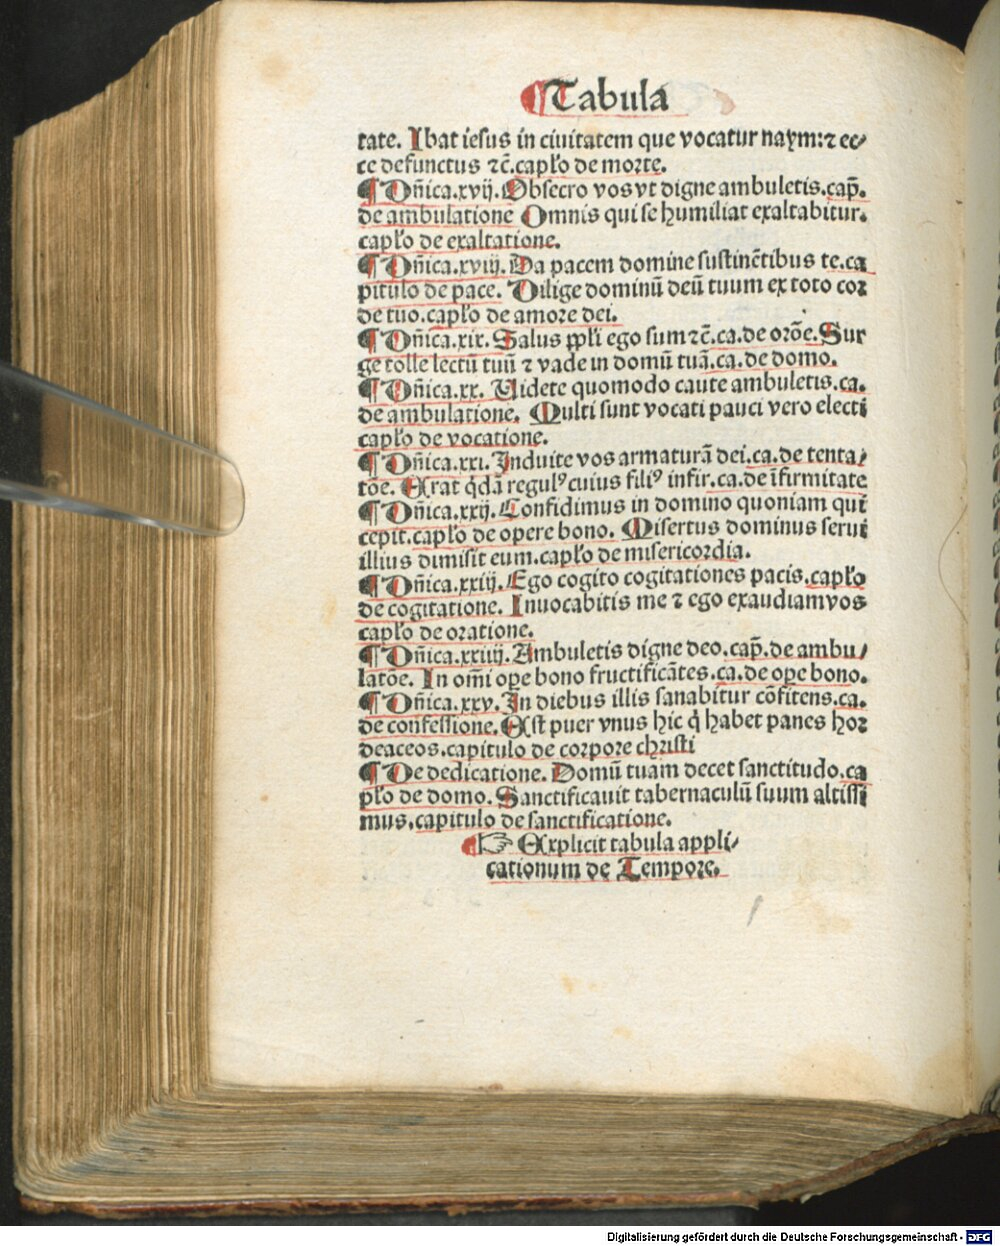 ¶ Tabula
tate. Ibat iesus in ciuitatem que vocatur naym: ⁊ ec⸗
ce defunctus ⁊c̄. capłо de morte.
¶ Dñica.xvij. Obsecro vos vt digne ambuletis.cap̄.
de ambulatione Omnis qui se humiliat exaltabitur.
capło de exaltatione.
¶ Dñica.xviij. Da pacem domine sustinētibus te.ca
pitulo de pace. Dilige dominū deū tuum ex toto cor
de tuo.capło de amore dei.
¶ Dñica.xix. Salus ppli ego sum ⁊c̄.ca.de orōe. Sur
ge tolle lectū tuū ⁊ vade in domū tuā.ca.de domo.
¶ Dñica.xx. Uidete quomodo caute ambuletis.ca.
de ambulatione. Multi sunt vocati pauci vero electi
capło de vocatione.
¶ Dñica.xxi. Induite vos armaturā dei.ca.de tenta⸗
tōe. Erat q̇dā regulꝰ cuius filiꝰ infir.ca.de īfirmitate
¶ Dñica.xxij. Confidimus in domino quoniam qui
cepit.capło de opere bono. Misertus dominus serui
illius dimisit eum.capło de misericordia.
¶ Dñica.xxiij. Ego cogito cogitationes pacis.capło
de cogitatione. Inuocabitis me ⁊ ego exaudiam vos
capło de oratione.
¶ Dñica.xxiiij. Ambuletis digne deo.cap̄.de ambu⸗
latōe. In om̄i oꝑe bono fructificātes.ca.de oꝑe bono.
¶ Dñica.xxv. In diebus illis sanabitur cōfitens.ca.
de confessione. Est puer vnus hic q̇ habet panes hor
deaceos.capitulo de corpore christi
¶ De dedicatione. Domū tuam decet sanctitudo.ca
pło de domo. Sanctificauit tabernaculū suum altissi
mus.capitulo de sanctificatione.
¶ ☞ Explicit tabula appli⸗
cationum de Tempore.
Digitalisierung gefördert durch die Deutsche Forschungsgemeinschaft - DFG